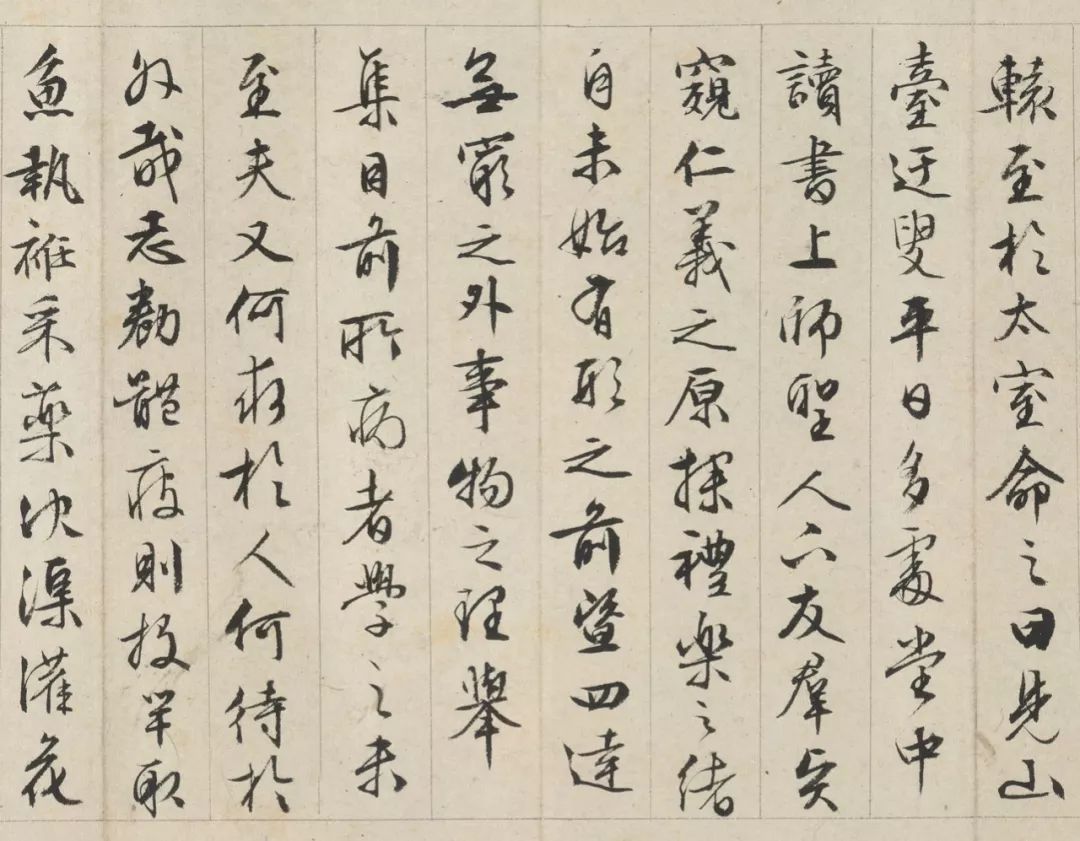 轅至於太室命之曰見山
臺迂叟平日多處堂中
讀書上師聖人下友羣賢
窺仁義之原探禮樂之緒
自未始有形之前暨四達
無窮之外事物之理舉
集目前所病者學之未
至夫又何求於人何待於
外哉志勌體疲則投竿取
魚執衽采藥決渠灌花